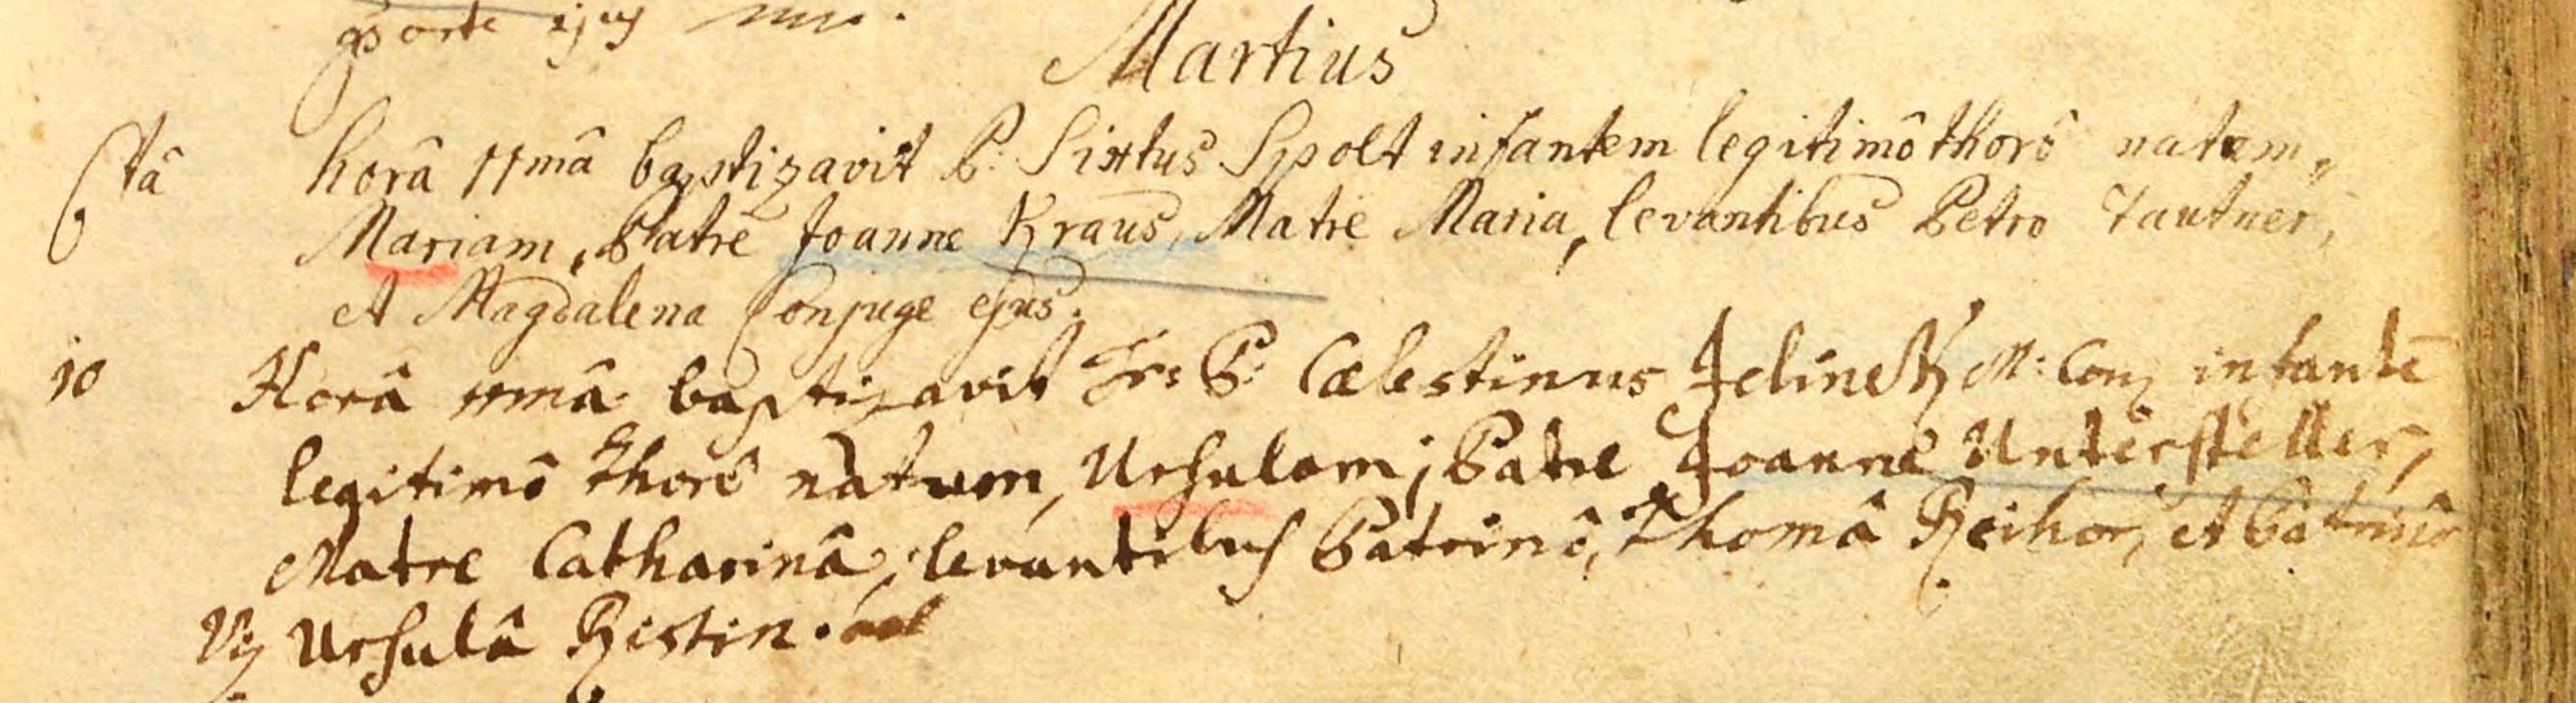 ejus
Martius
6tâ horâ 11mâ baptizavit P: Sixtus Spolt infantem legitimô thorô natam,
Mariam, Patre Joanne Kraus, Matre Maria, levantibus Petro Tautner,
et Magdalena Conjuge ejus.
10 Horâ 11mâ baptizavit Fr: P: Cælestinus Jelinek M: Conz infantē
legitimô thorô natam, Ursulam; Patre Joanne Untersteller,
Matre Catharinâ, levantibus Patrinô, Thomâ Reihor, et Patrinâ
Viz Ursulâ Ristin.